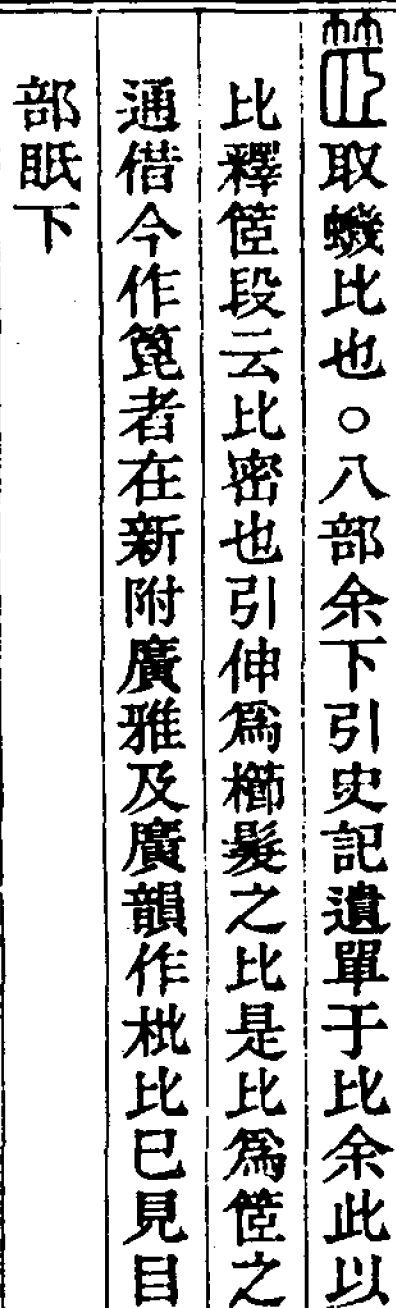 𥮒取蟣比也○八部余下引史記遺單于比余此以
比釋𥮒段云比密也引伸爲櫛髮之比是比爲𥮒之
通借今作篦者在新附廣雅及廣韻作枇比已見目
部眂下